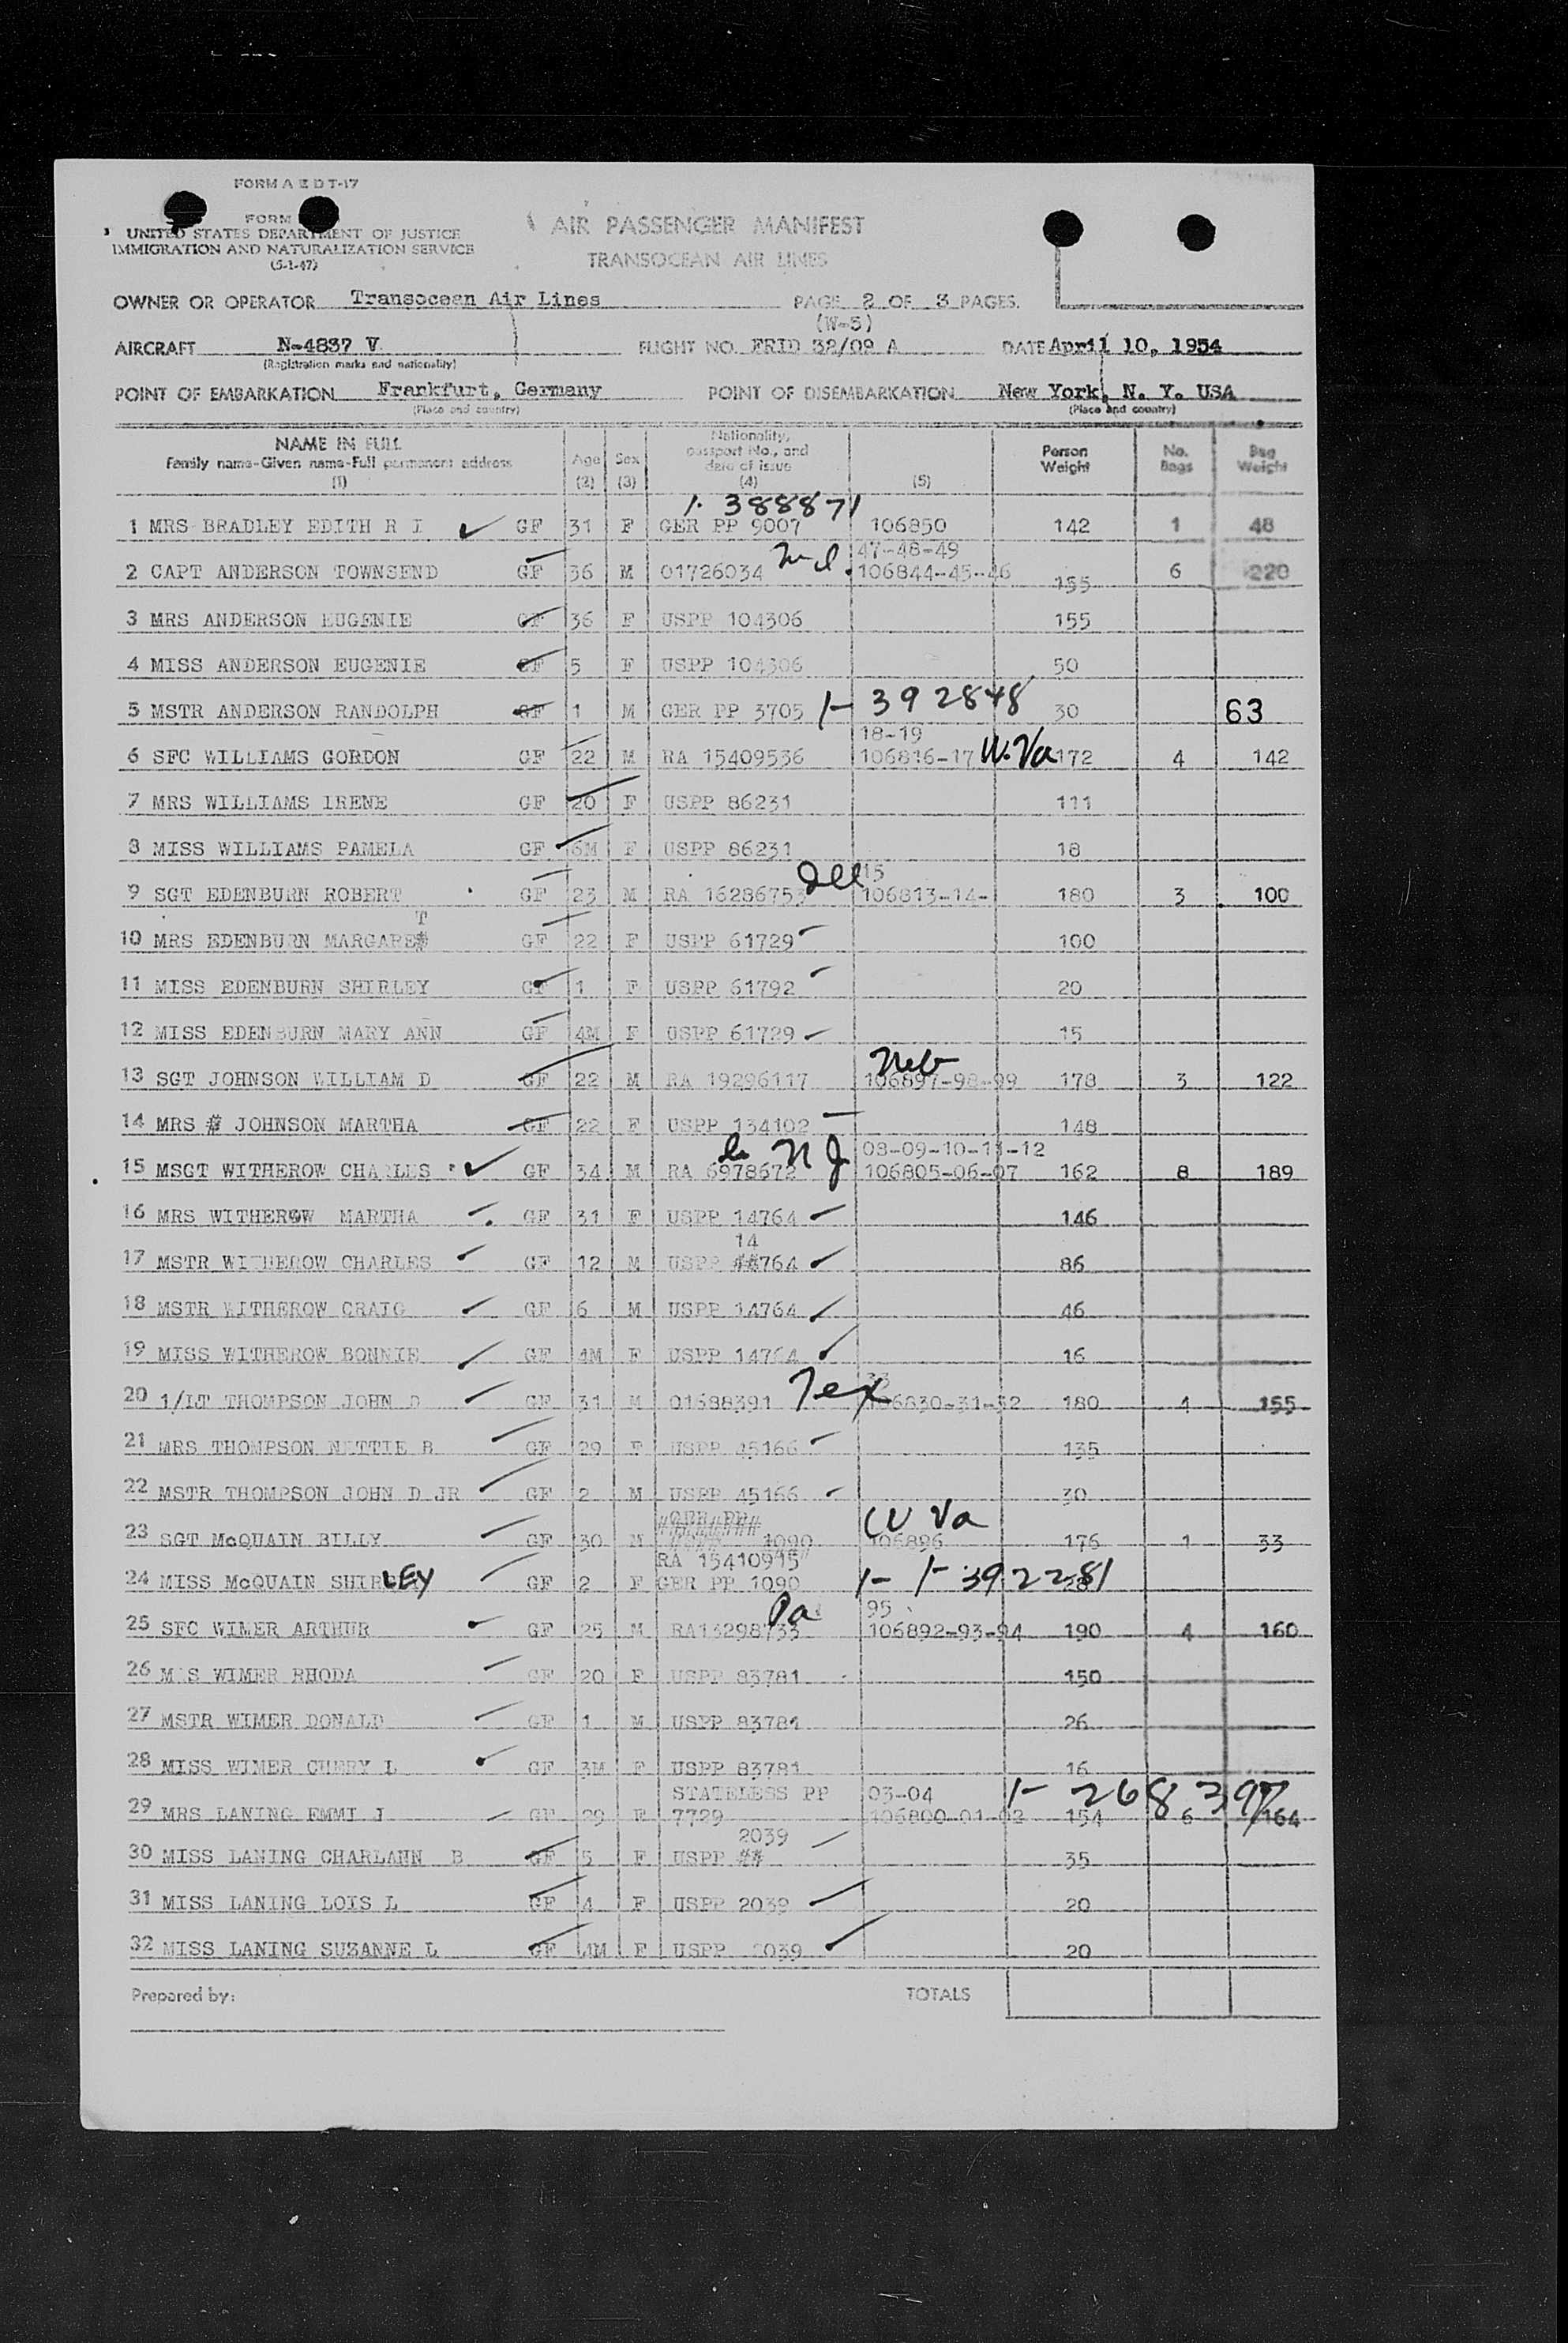 FORM A E D T-17
FORM
UNITED STATES DEPARTMENT OF JUSTICE
IMMIGRATION AND NATURALIZATION SERVICE
(5-1-47)
AIR PASSENGER MANIFEST
TRANSOCEAN AIR LINES
OWNER OR OPERATOR Transocean Air Lines PAGE 2 OF 3 PAGES.
(W-5)
AIRCRAFT N-4837 V FLIGHT NO. FRID 32/09 A DATE April 10, 1954
(Registration marks and nationality)
POINT OF EMBARKATION Frankfurt, Germany POINT OF DISEMBARKATION New York, N. Y. USA
(Place and country) (Place and country)
NAME IN FULL
Family name-Given name-Full permanent address
(1)
Age
(2)
Sex
(3)
Nationality,
passport No., and
date of issue
(4)
(5)
Person
Weight
No.
Bags
Bag
Weight
1- 388871
1 MRS BRADLEY EDITH R I GF 31 F GER PP 9007 106850 142 1 48
47-48-49
2 CAPT ANDERSON TOWNSEND GF 36 M 01726034 106844-45-46 155 6 220
3 MRS ANDERSON EUGENIE GF 36 F USPP 104306 155
4 MISS ANDERSON EUGENIE GF 5 F USPP 104306 50
5 MSTR ANDERSON RANDOLPH GF 1 M GER PP 3705 1- 392848 30 63
18-19
6 SFC WILLIAMS GORDON GF 22 M RA 15409536 106816-17 W.Va 172 4 142
7 MRS WILLIAMS IRENE GF 20 F USPP 86231 111
8 MISS WILLIAMS PAMELA GF 6M F USPP 86231 18
Ill 15
9 SGT EDENBURN ROBERT GF 23 M RA 16286753 106813-14- 180 3 100
T
10 MRS EDENBURN MARGARE# GF 22 F USPP 61729 100
11 MISS EDENBURN SHIRLEY GF 1 F USPP 61792 20
12 MISS EDENBURN MARY ANN GF 4M F USPP 61729 15
Neb
13 SGT JOHNSON WILLIAM D GF 22 M RA 19296117 106897-98-99 178 3 122
14 MRS # JOHNSON MARTHA GF 22 F USPP 134102 148
N J 08-09-10-11-12
15 MSGT WITHEROW CHARLES GF 34 M RA 6978672 106805-06-07 162 8 189
16 MRS WITHEROW MARTHA GF 31 F USPP 14764 146
14
17 MSTR WITHEROW CHARLES GF 12 M USPP ##764 86
18 MSTR WITHEROW CRAIG GF 6 M USPP 14764 46
19 MISS WITHEROW BONNIE GF 4M F USPP 14764 16
Tex 33
20 1/LT THOMPSON JOHN D GF 31 M 01688391 106830-31-32 180 4 155
21 MRS THOMPSON NETTIE B GF 29 F USPP 45166 135
22 MSTR THOMPSON JOHN D JR GF 2 M USPP 45166 30
W Va
23 SGT McQUAIN BILLY GF 30 M 1090 106896 176 1 33
RA 15410915
24 MISS McQUAIN SHIRLEY GF 2 F GER PP 1090 1- 1- 392281
Pa 95
25 SFC WIMER ARTHUR GF 25 M RA13298733 106892-93-94 190 4 160
26 M S WIMER RHODA GF 20 F USPP 83781 150
27 MSTR WIMER DONALD GF 1 M USPP 83781 26
28 MISS WIMER CHERY L GF 3M F USPP 83781 16
STATELESS PP 03-04 1- 268397
29 MRS LANING EMMI J GF 29 F 7729 106800-01-02 154 6 164
2039
30 MISS LANING CHARLANN B GF 5 F USPP ## 35
31 MISS LANING LOIS L GF 4 F USPP 2039 20
32 MISS LANING SUZANNE L GF 4M F USPP 2039 20
Prepared by: TOTALS